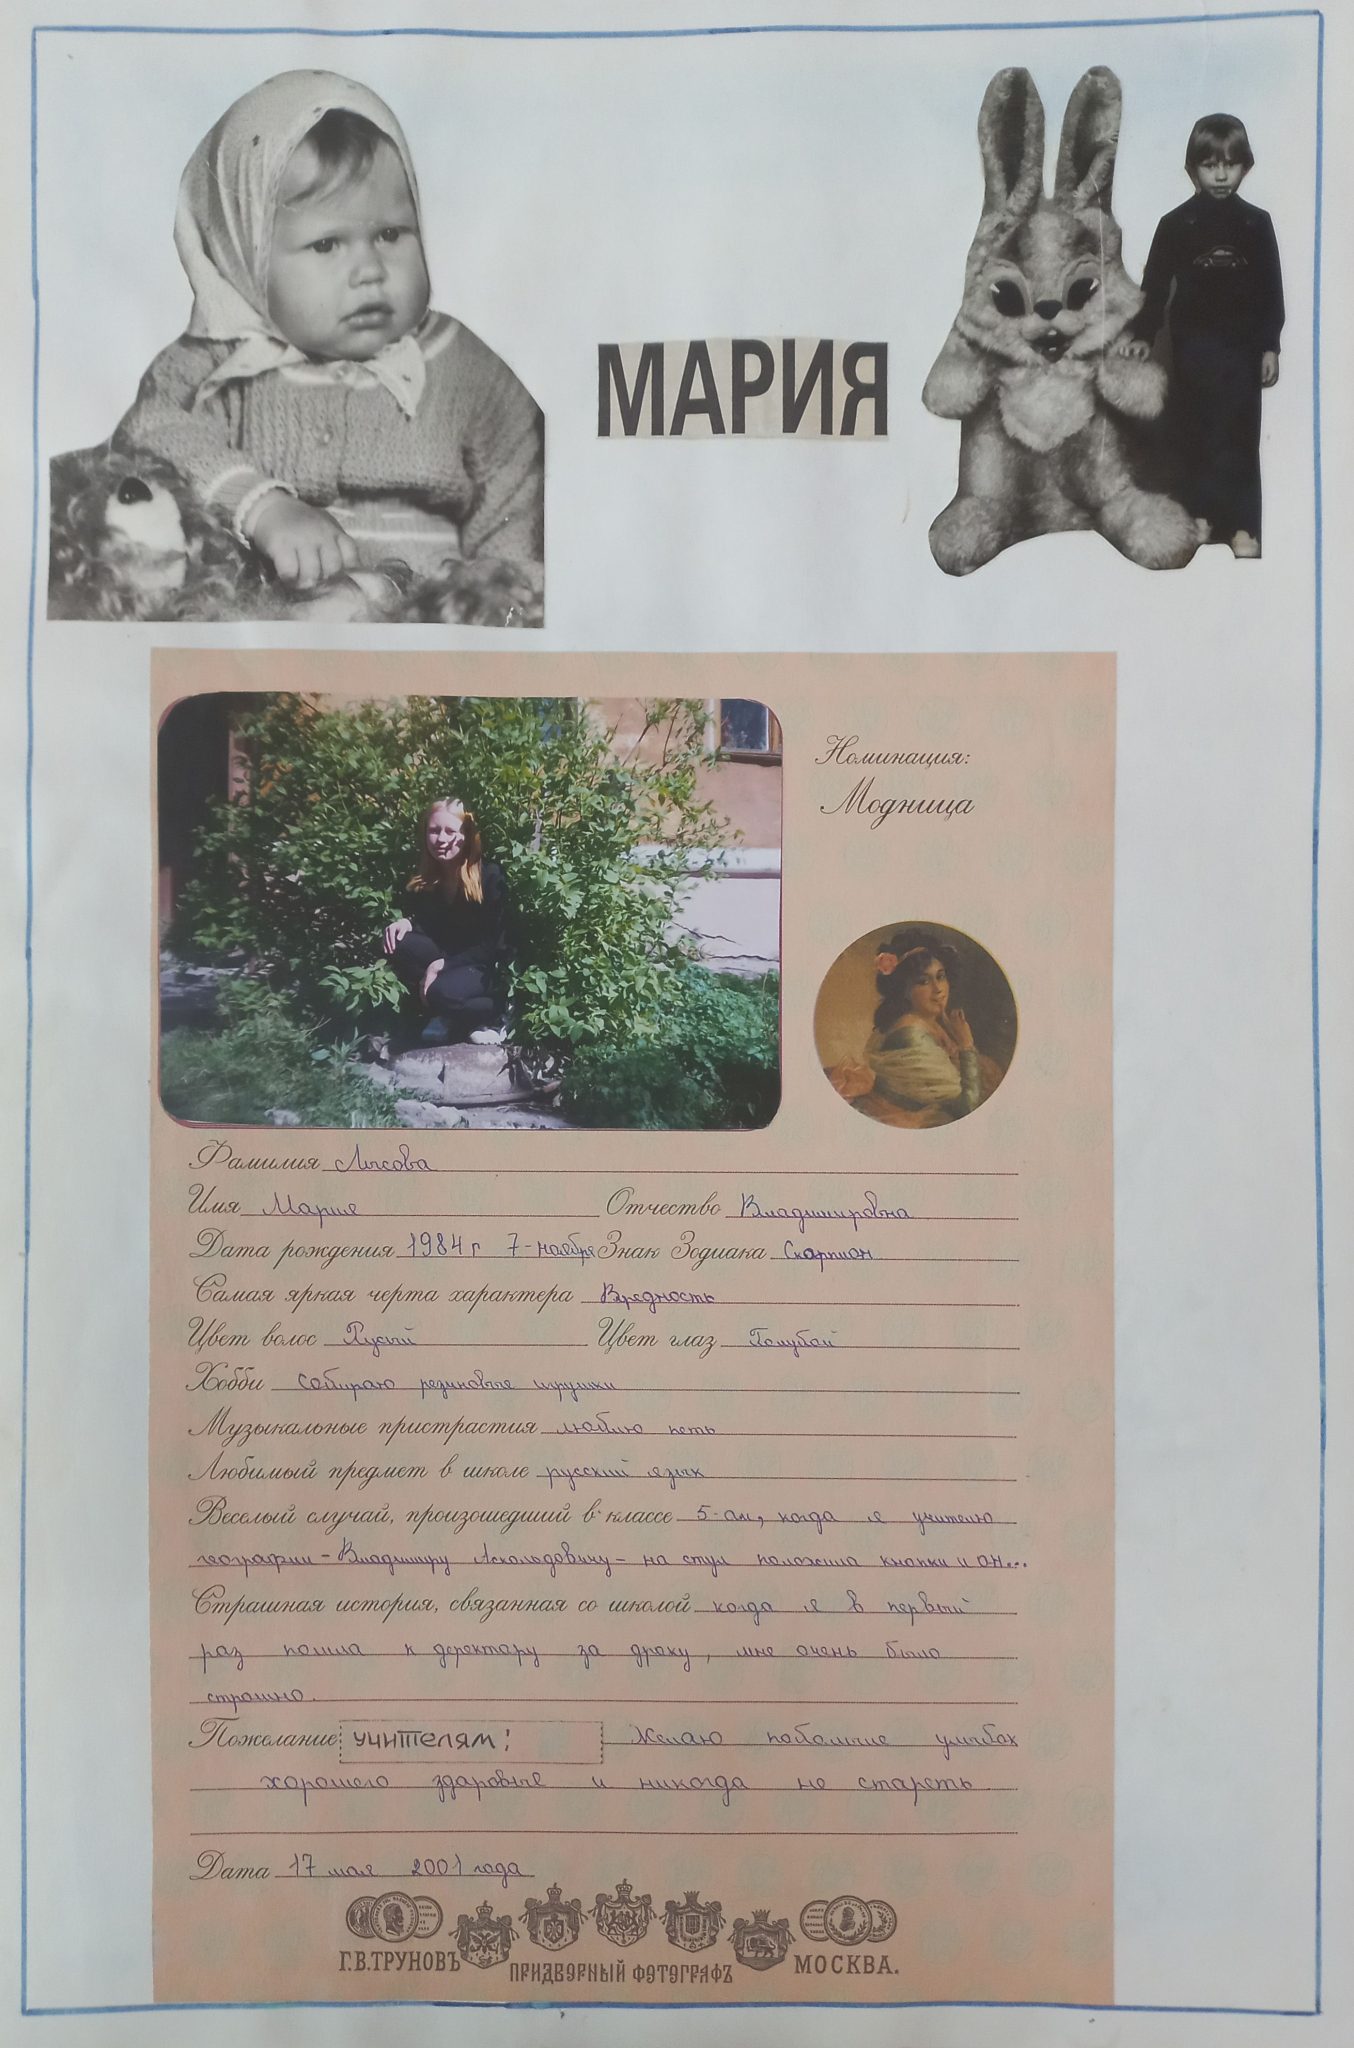 МАРИЯ
Номинация:
Модница
Фамилия Лысова
Имя Мария Отчество Владимировна
Дата рождения 1984 г 7-ноября Знак Зодиака Скорпион
Самая яркая черта характера Вредность
Цвет волос Русый Цвет глаз Голубой
Хобби собираю резиновые игрушки
Музыкальные пристрастия люблю петь
Любимый предмет в школе русский язык
Веселый случай, произошедший в классе 5-ом, когда я учителю
географии - Владимиру Аскольдовичу - на стул положила кнопки и он...
Страшная история, связанная со школой когда я в первый
раз пошла к деректару за драку, мне очень было
страшно.
Пожелание учителям! Желаю побольше улыбок
хорошего здаровье и никогда не стареть
Дата 17 мая 2001 года
Г.В.ТРУНОВЪ ПРИДВОРНЫЙ ФОТОГРАФЪ МОСКВА.